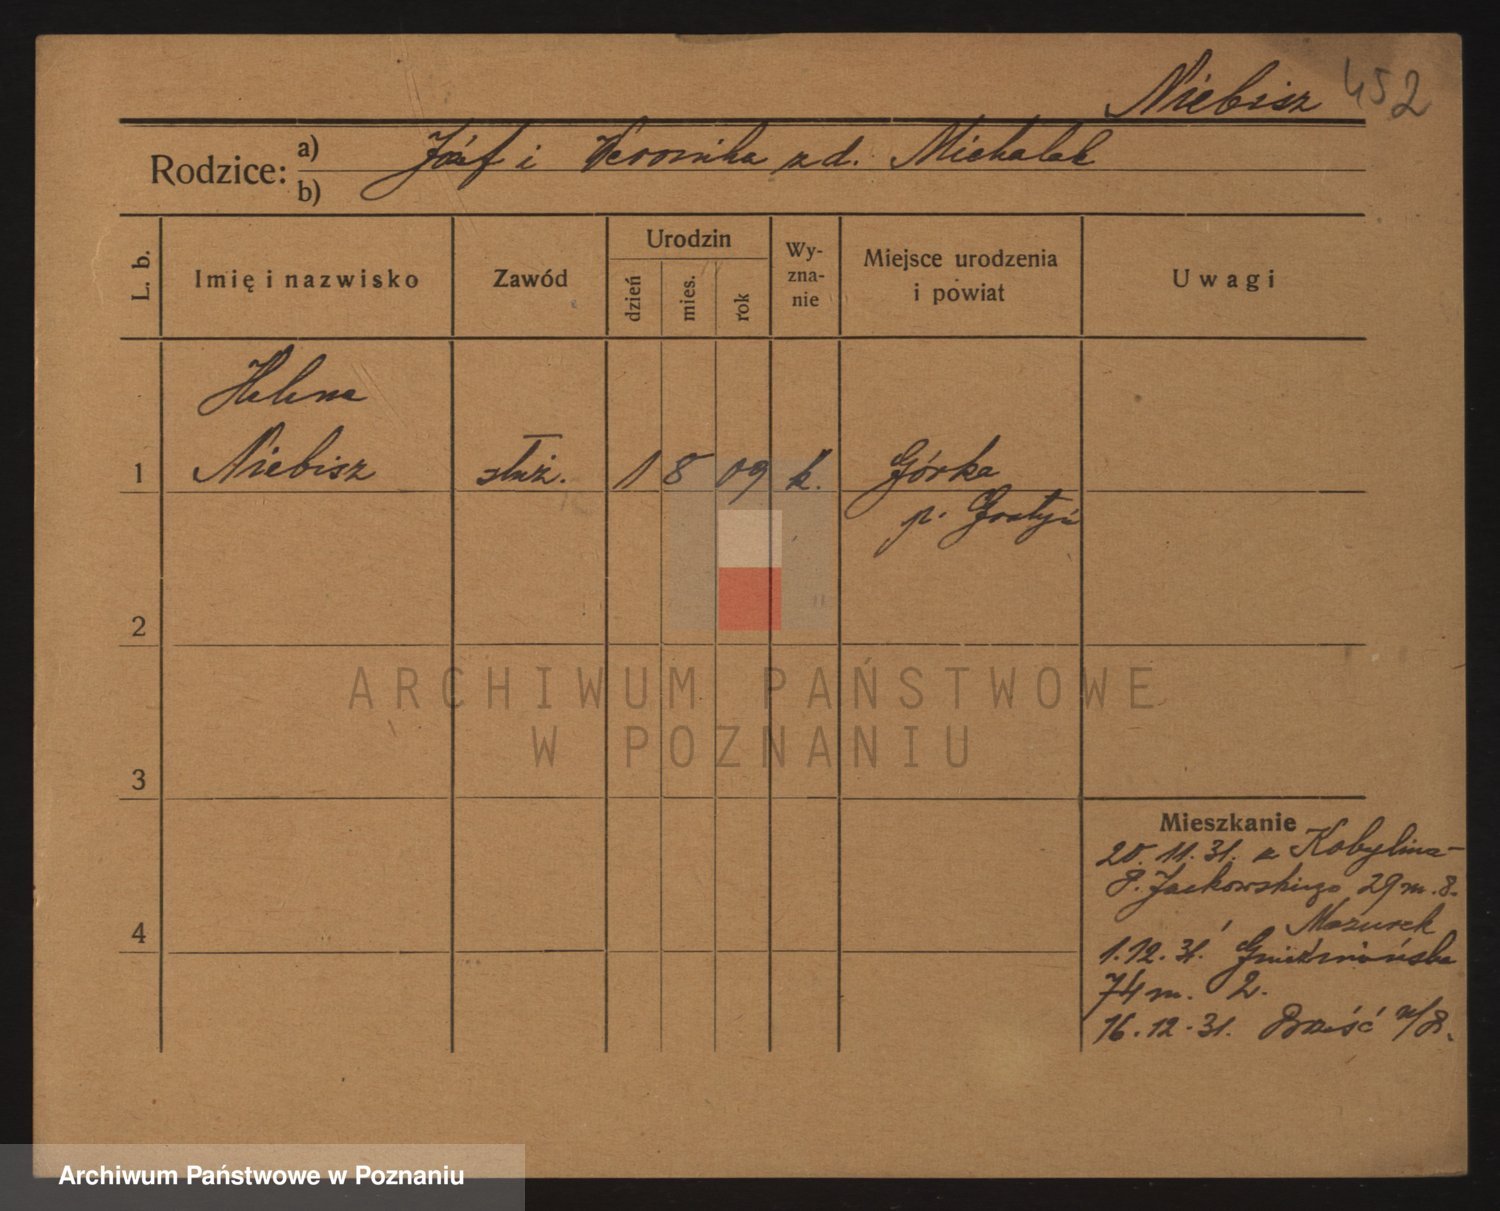 Niebisz 452
Rodzice: a) Józef i Weronika z d. Michalak
b)
L. b.
Imię i nazwisko
Zawód
Urodzin
dzień
mies.
rok
Wy-
zna-
nie
Miejsce urodzenia
i powiat
Uwagi
Helena
1 Niebisz służ. 1 8 09 k. Górka
p. Gostyń
2
ARCHIWUM PAŃSTWOWE
W POZNANIU
3
Mieszkanie
20.11.31. z Kobylina-
P. Jackowskiego 29 m. 8.
Mazurek
4
1.12.31. Gnieźnieńska
74 m. 2.
16.12.31. Brześć n/B.
Archiwum Państwowe w Poznaniu